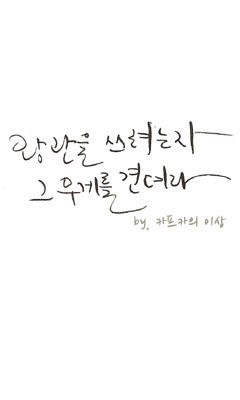 왕관을 쓰려는자
그 무게를 견뎌라
by. 카프카의 이상